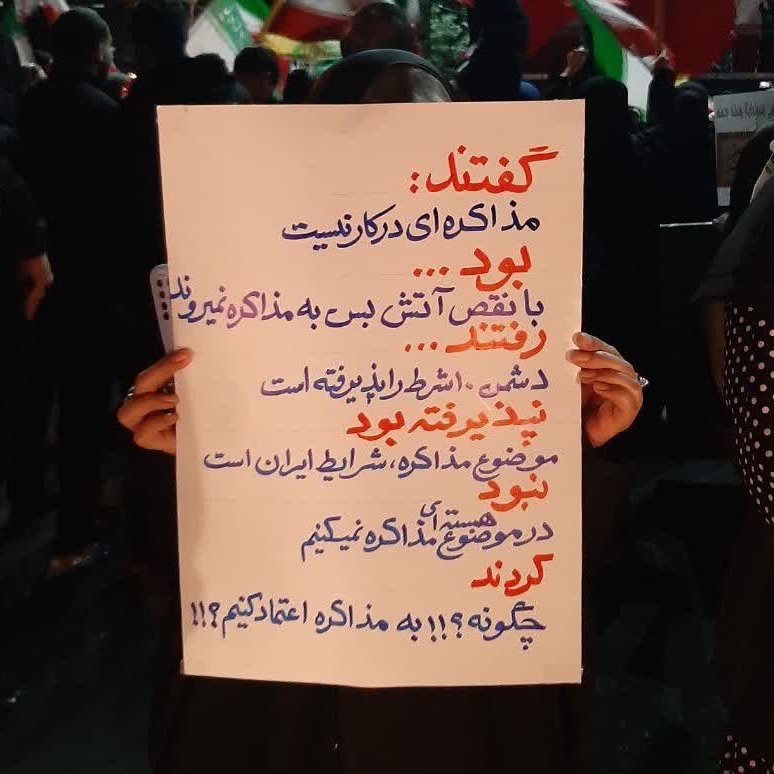 گفتند:
مذاکره ای در کار نیست
بود...
با نقص آتش بس به مذاکره نمیروند
رفتند...
دشمن ۱۰ شرط را پذیرفته است
نپذیرفته بود
موضوع مذاکره، شرایط ایران است
نبود
در موضوع هسته ای مذاکره نمیکنیم
کردند
چگونه؟!! به مذاکره اعتماد کنیم؟!!